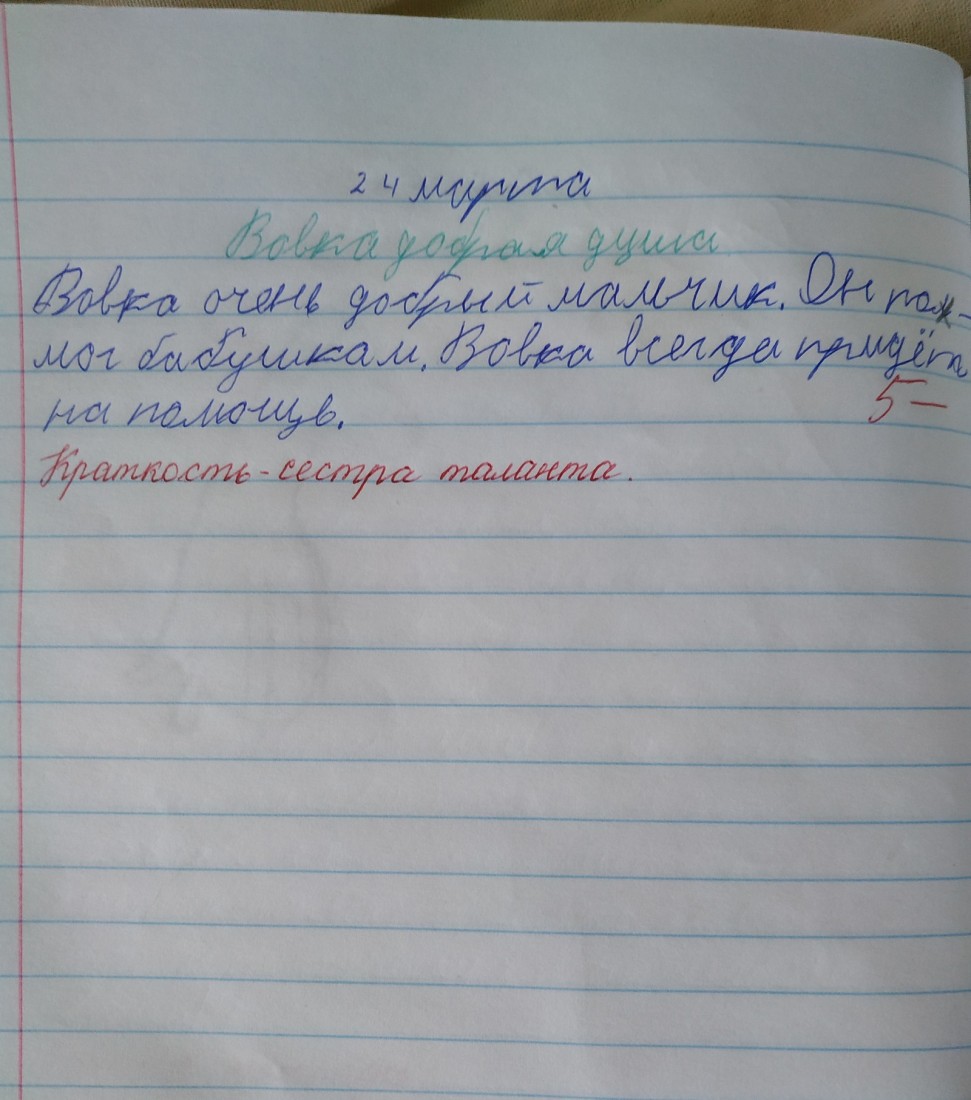 24 марта
Вовка добрая душа
Вовка очень добрый мальчик. Он пом-
мог бабушкам. Вовка всегда придёт
на помощь.
5-
Краткость-сестра таланта.